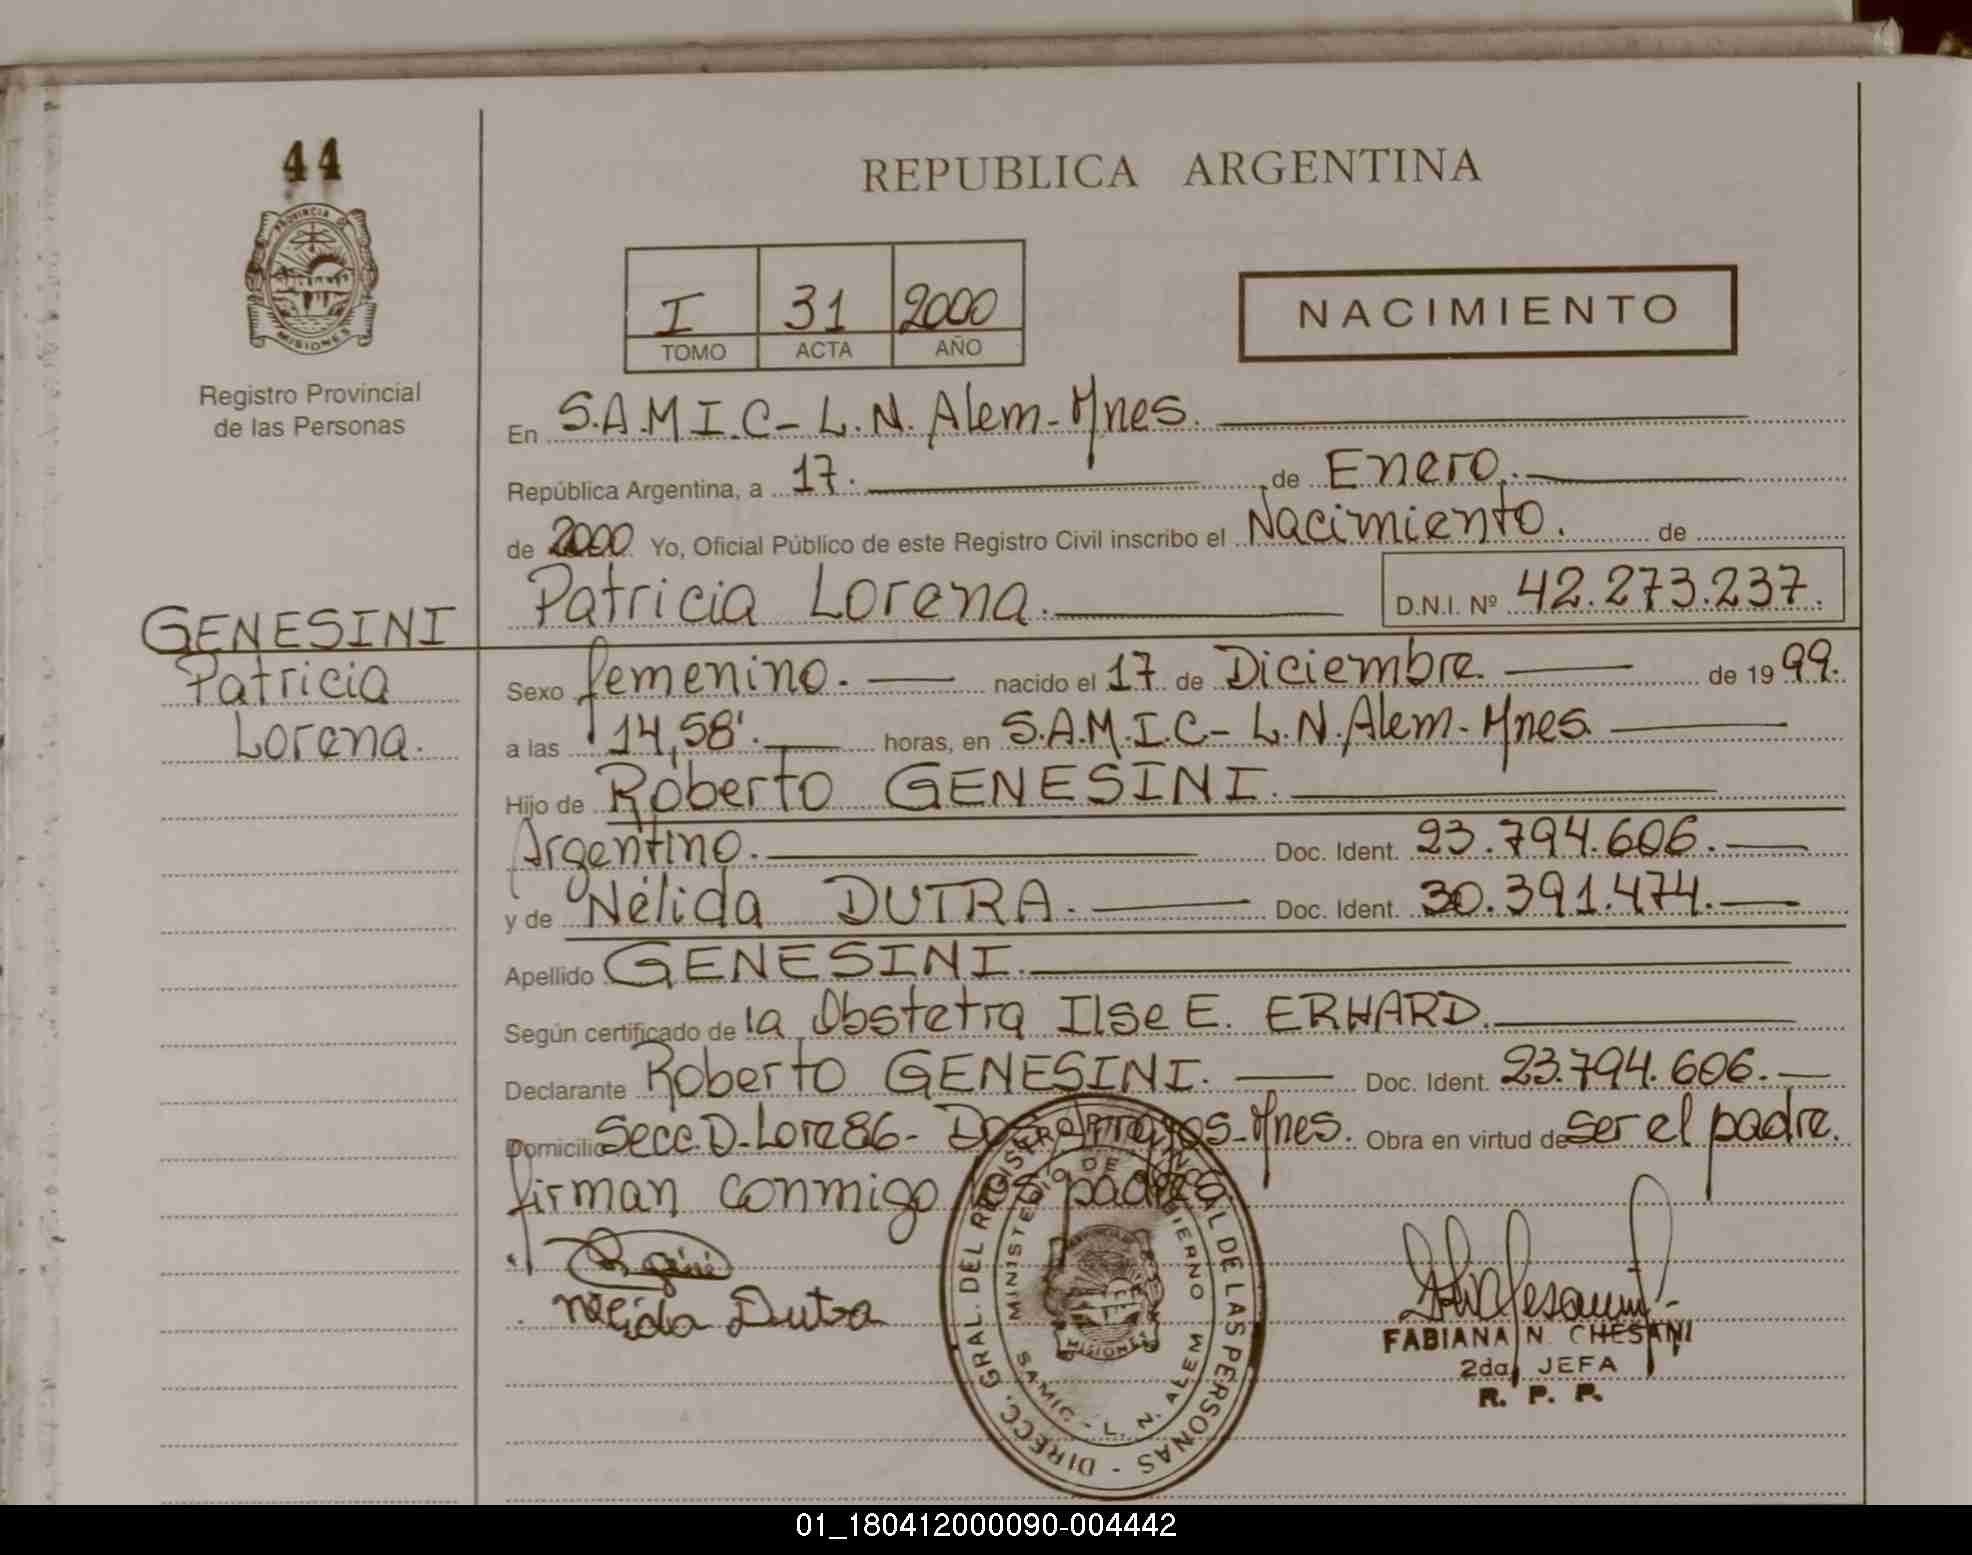 44
REPUBLICA ARGENTINA
PROVINCIA DE
MISIONES
Registro Provincial
de las Personas
I 31 2000
TOMO ACTA AÑO
NACIMIENTO
En S.A.M.I.C- L.N. Alem-Mnes.
República Argentina, a 17. de Enero.
de 2000 Yo, Oficial Público de este Registro Civil inscribo el Nacimiento. de
Patricia Lorena. D.N.I. Nº 42.273.237.
GENESINI
Patricia
Lorena.
Sexo femenino. nacido el 17 de Diciembre. de 1999.
a las 14,58'. horas, en S.A.M.I.C- L.N. Alem-Mnes.
Hijo de Roberto GENESINI.
Argentino. Doc. Ident. 23.794.606.
y de Nélida DUTRA. Doc. Ident. 30.391.474.
Apellido GENESINI.
Según certificado de la Obstetra Ilse E. ERHARD.
Declarante Roberto GENESINI. Doc. Ident. 23.794.606.
Domicilio Secc.D-Lote86- Dos Arroyos-Mnes. Obra en virtud de ser el padre.
firman conmigo los padres
Nelida Dutra
DIRECC. GRAL. DEL REGISTRO PROVINCIAL DE LAS PERSONAS -
MINISTERIO DE GOBIERNO
MISIONES
SAMIC - L. N. ALEM
FABIANA N. CHESANI
2da. JEFA
R. P. P.
01_180412000090-004442